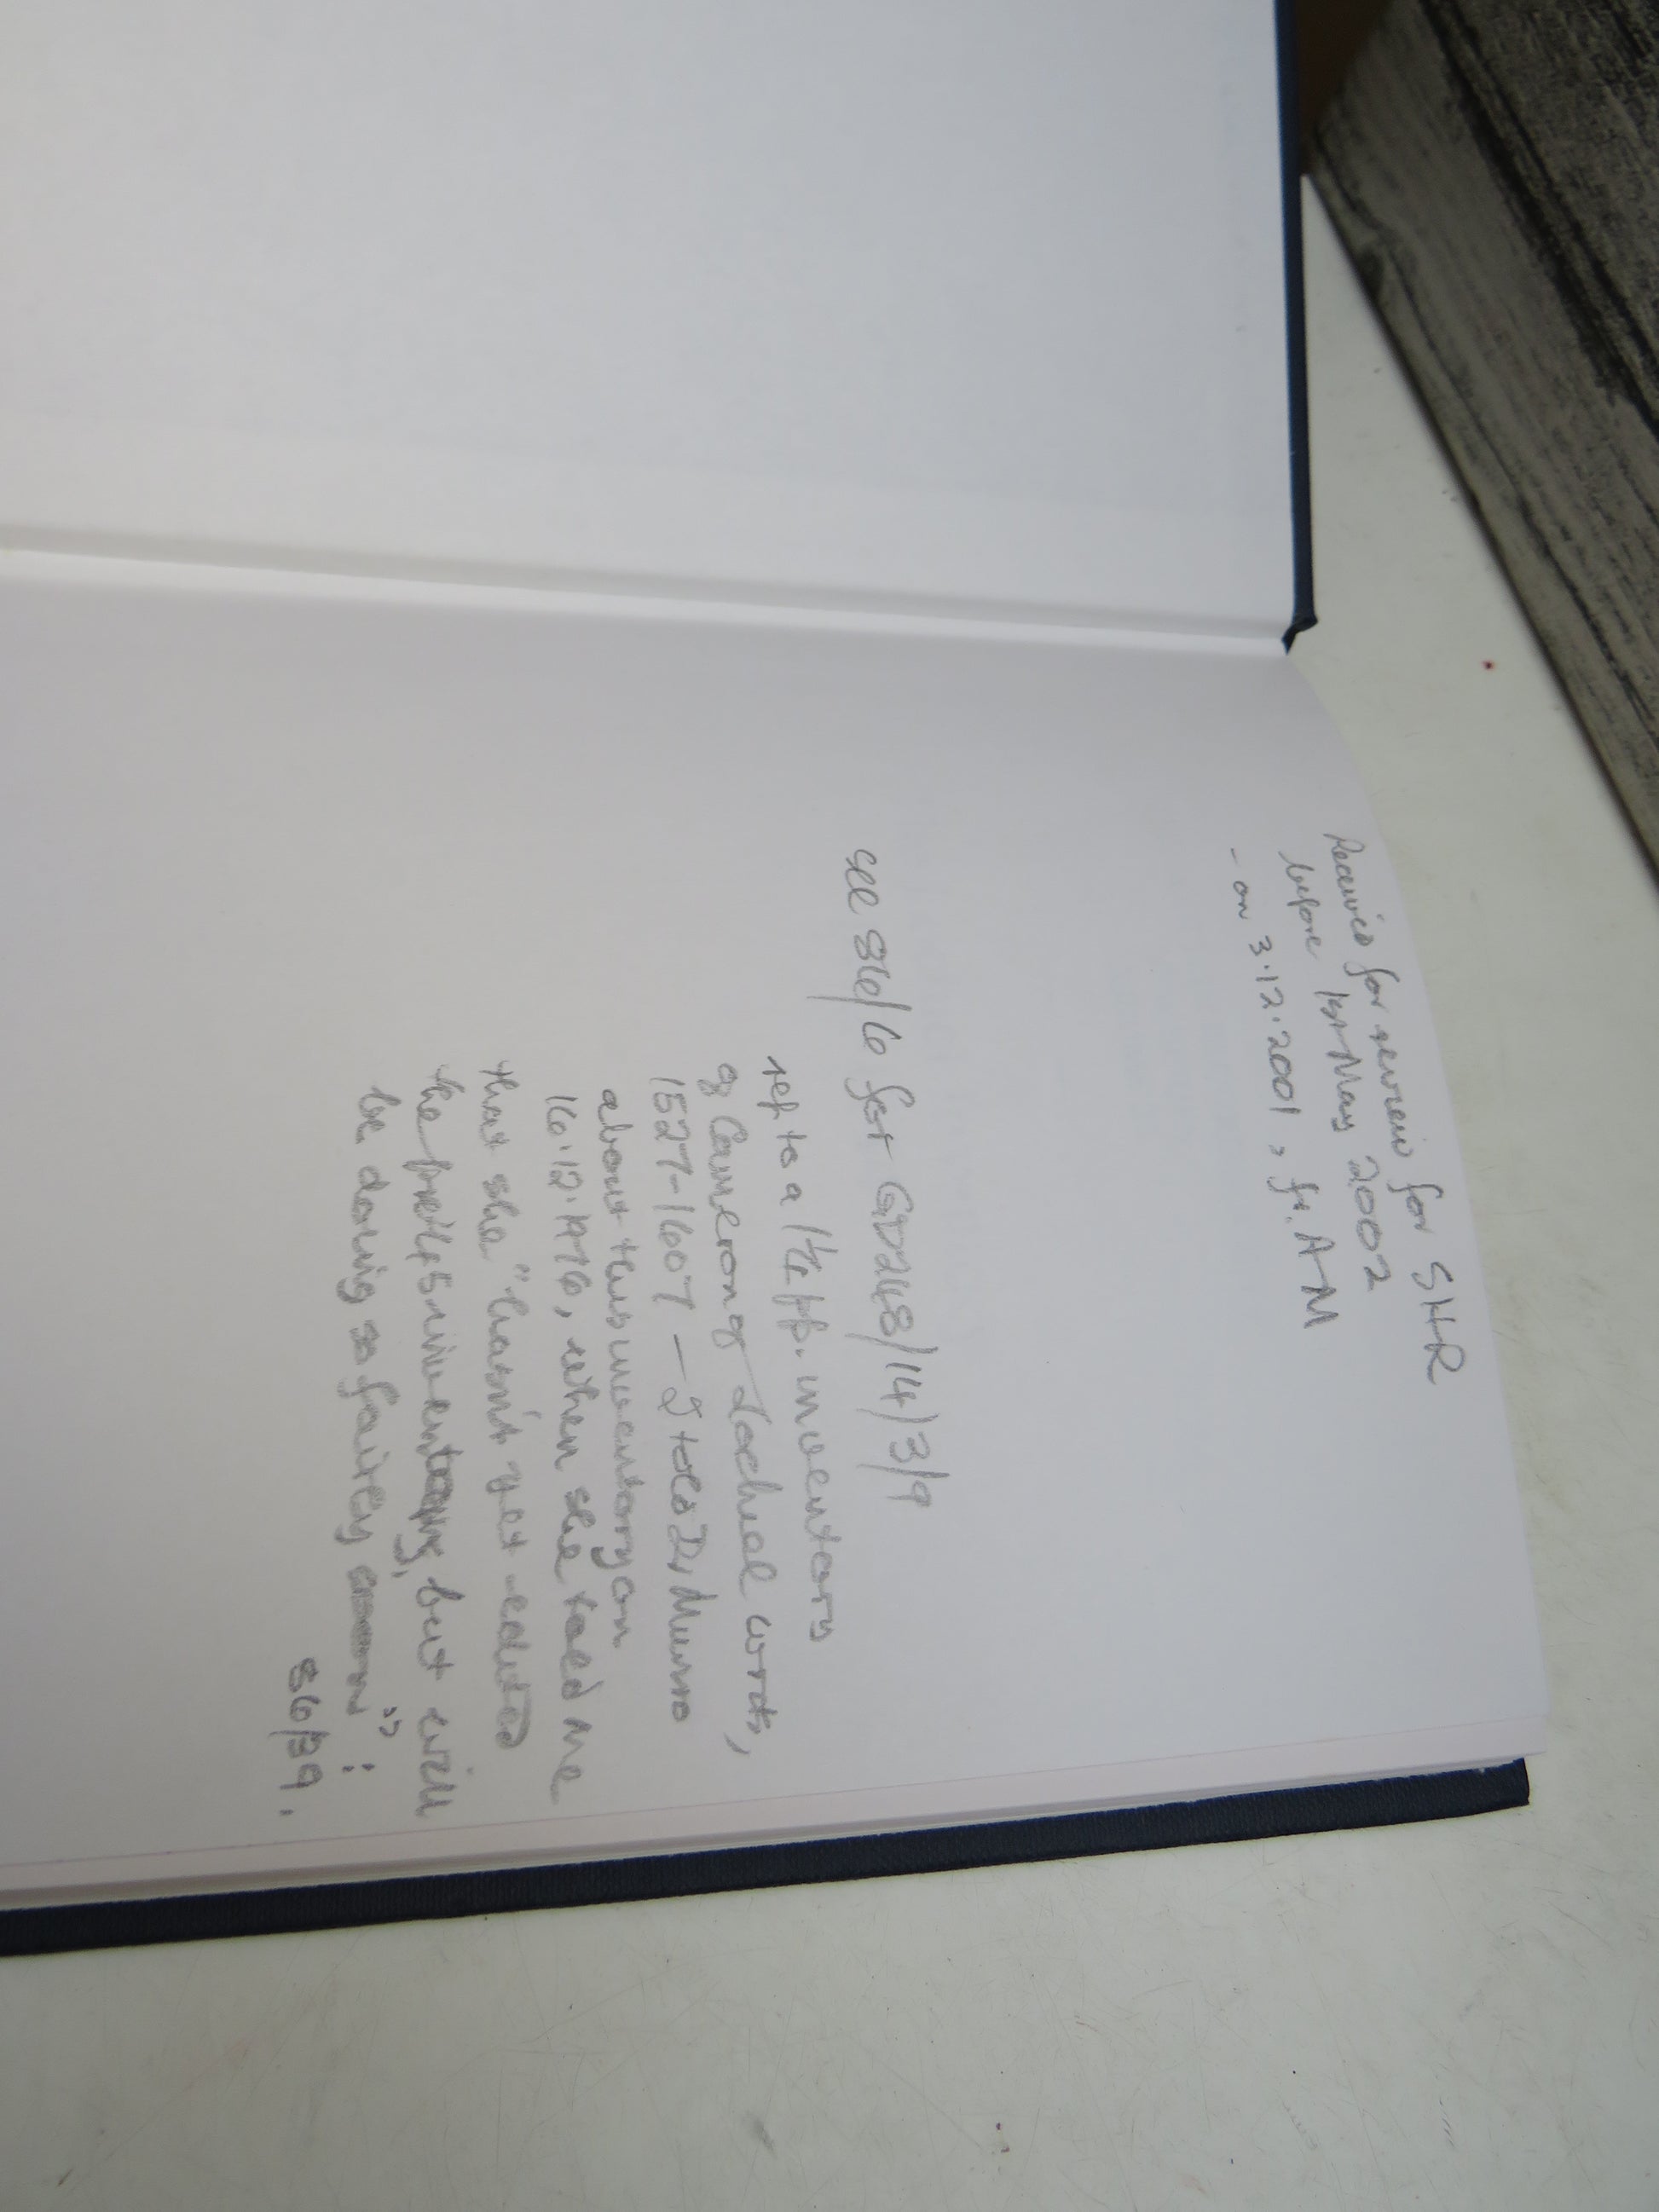 Received for review for SHR
before 1st May 2002
- on 3.12.2001, fr. AM
see S6/6 for GD248/14/3/9
ref to a 1½ pp. inventory
of Cameron of Lochiel writs,
1527-1607 — I told J. Munro
about this inventory on
16.12.1976, when she told me
that she "hasn't yet edited
the pre-45 inventory, but will
be doing so fairly soon" :
S6/39.